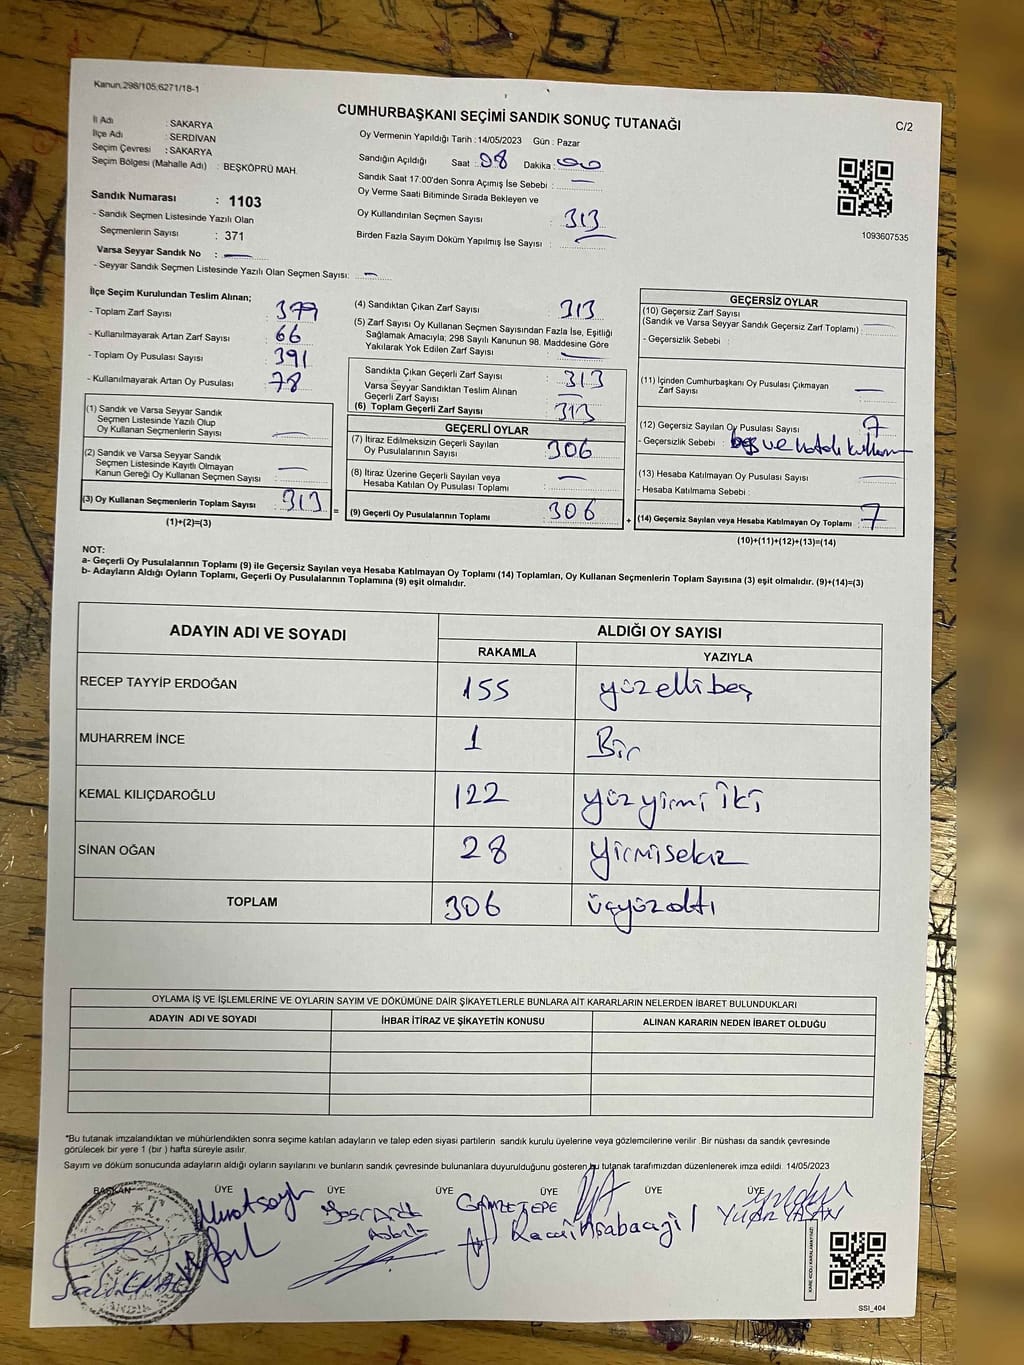 Kanun.298/105,6271/18-1
CUMHURBAŞKANI SEÇİMİ SANDIK SONUÇ TUTANAĞI
C/2
İl Adı : SAKARYA
İlçe Adı : SERDİVAN
Seçim Çevresi : SAKARYA
Seçim Bölgesi (Mahalle Adı) : BEŞKÖPRÜ MAH.
Sandık Numarası : 1103
- Sandık Seçmen Listesinde Yazılı Olan
Seçmenlerin Sayısı : 371
Varsa Seyyar Sandık No : —
- Seyyar Sandık Seçmen Listesinde Yazılı Olan Seçmen Sayısı: —
Oy Vermenin Yapıldığı Tarih : 14/05/2023 Gün : Pazar
Sandığın Açıldığı Saat : 08 Dakika : 00
Sandık Saat 17:00'den Sonra Açımış İse Sebebi : —
Oy Verme Saati Bitiminde Sırada Bekleyen ve
Oy Kullandırılan Seçmen Sayısı : 313
Birden Fazla Sayım Döküm Yapılmış İse Sayısı : —
1093607535
İlçe Seçim Kurulundan Teslim Alınan;
- Toplam Zarf Sayısı : 379
- Kullanılmayarak Artan Zarf Sayısı : 66
- Toplam Oy Pusulası Sayısı : 391
- Kullanılmayarak Artan Oy Pusulası : 78
(1) Sandık ve Varsa Seyyar Sandık
Seçmen Listesinde Yazılı Olup
Oy Kullanan Seçmenlerin Sayısı : —
(2) Sandık ve Varsa Seyyar Sandık
Seçmen Listesinde Kayıtlı Olmayan
Kanun Gereği Oy Kullanan Seçmen Sayısı : —
(3) Oy Kullanan Seçmenlerin Toplam Sayısı : 313
(1)+(2)=(3)
=
(4) Sandıktan Çıkan Zarf Sayısı : 313
(5) Zarf Sayısı Oy Kullanan Seçmen Sayısından Fazla İse, Eşitliği
Sağlamak Amacıyla; 298 Sayılı Kanunun 98. Maddesine Göre
Yakılarak Yok Edilen Zarf Sayısı : —
Sandıkta Çıkan Geçerli Zarf Sayısı : 313
Varsa Seyyar Sandıktan Teslim Alınan
Geçerli Zarf Sayısı : —
(6) Toplam Geçerli Zarf Sayısı : 313
GEÇERLİ OYLAR
(7) İtiraz Edilmeksizin Geçerli Sayılan
Oy Pusulalarının Sayısı : 306
(8) İtiraz Üzerine Geçerli Sayılan veya
Hesaba Katılan Oy Pusulası Toplamı : —
(9) Geçerli Oy Pusulalarının Toplamı : 306
+
GEÇERSİZ OYLAR
(10) Geçersiz Zarf Sayısı
(Sandık ve Varsa Seyyar Sandık Geçersiz Zarf Toplamı) : —
- Geçersizlik Sebebi :
(11) İçinden Cumhurbaşkanı Oy Pusulası Çıkmayan
Zarf Sayısı : —
(12) Geçersiz Sayılan Oy Pusulası Sayısı : 7
- Geçersizlik Sebebi : boş ve hatalı kullanım
(13) Hesaba Katılmayan Oy Pusulası Sayısı : —
- Hesaba Katılmama Sebebi :
(14) Geçersiz Sayılan veya Hesaba Katılmayan Oy Toplamı : 7
(10)+(11)+(12)+(13)=(14)
NOT:
a- Geçerli Oy Pusulalarının Toplamı (9) ile Geçersiz Sayılan veya Hesaba Katılmayan Oy Toplamı (14) Toplamları, Oy Kullanan Seçmenlerin Toplam Sayısına (3) eşit olmalıdır. (9)+(14)=(3)
b- Adayların Aldığı Oyların Toplamı, Geçerli Oy Pusulalarının Toplamına (9) eşit olmalıdır.
ADAYIN ADI VE SOYADI ALDIĞI OY SAYISI
RAKAMLA YAZIYLA
RECEP TAYYİP ERDOĞAN 155 yüzellibeş
MUHARREM İNCE 1 Bir
KEMAL KILIÇDAROĞLU 122 yüzyirmi iki
SİNAN OĞAN 28 yirmisekiz
TOPLAM 306 üçyüzaltı
OYLAMA İŞ VE İŞLEMLERİNE VE OYLARIN SAYIM VE DÖKÜMÜNE DAİR ŞİKAYETLERLE BUNLARA AİT KARARLARIN NELERDEN İBARET BULUNDUKLARI
ADAYIN ADI VE SOYADI İHBAR İTİRAZ VE ŞİKAYETİN KONUSU ALINAN KARARIN NEDEN İBARET OLDUĞU
*Bu tutanak imzalandıktan ve mühürlendikten sonra seçime katılan adayların ve talep eden siyasi partilerin sandık kurulu üyelerine veya gözlemcilerine verilir. Bir nüshası da sandık çevresinde
görülecek bir yere 1 (bir ) hafta süreyle asılır.
Sayım ve döküm sonucunda adayların aldığı oyların sayılarını ve bunların sandık çevresinde bulunanlara duyurulduğunu gösteren bu tutanak tarafımızdan düzenlenerek imza edildi. 14/05/2023
BAŞKAN ÜYE ÜYE ÜYE ÜYE ÜYE ÜYE
SSI_404